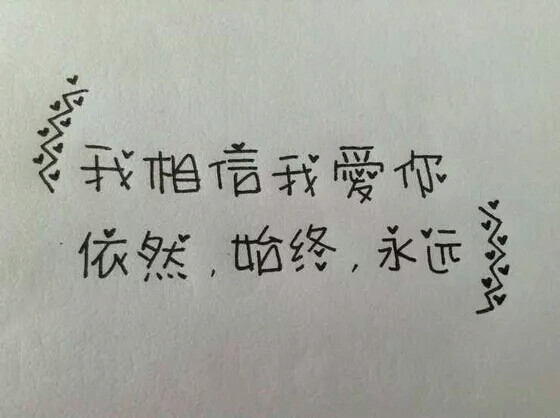 我相信我愛你
依然,始终,永远